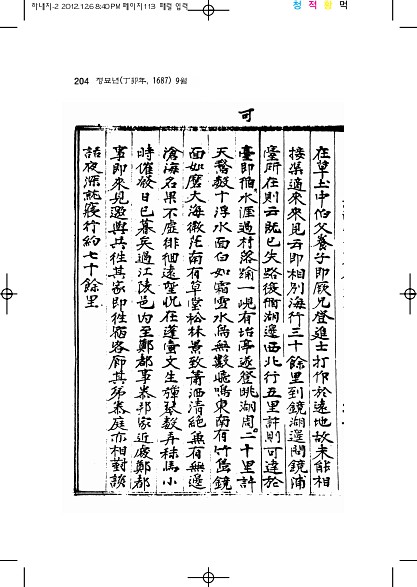 하내지-2 2012.12.6 8:40 PM 페이지113 제광 입력
청 적 황 먹
204 정묘년(丁卯年, 1687) 9월
可
在草土中伯父養子即厥兄登進士打作於遠地故未能相
接渠適來來見云即相別海行三十餘里到鏡湖邊問鏡浦
臺所在則云既已失路後湖邊西北行五里許則可達於
臺即循水涯過村路踰一峴有培亭遂登眺湖周二十里許
天鵝數十浮水面白如霜雪水鳥無數飛鳴東南有竹島鏡
面如磨大海微茫南有草堂松林景致蕭洒清絶無有無邊
滄海名果不虛徘徊遠望况在蓬臺文生彈琴數弄秣馬小
時催發日已暮矣過江陵邑内至鄭都事泰邦家近處鄭都
事即來見邀與共往其家即往宿客廊其弟泰庭亦相對談
話夜深就寢行約七十餘里